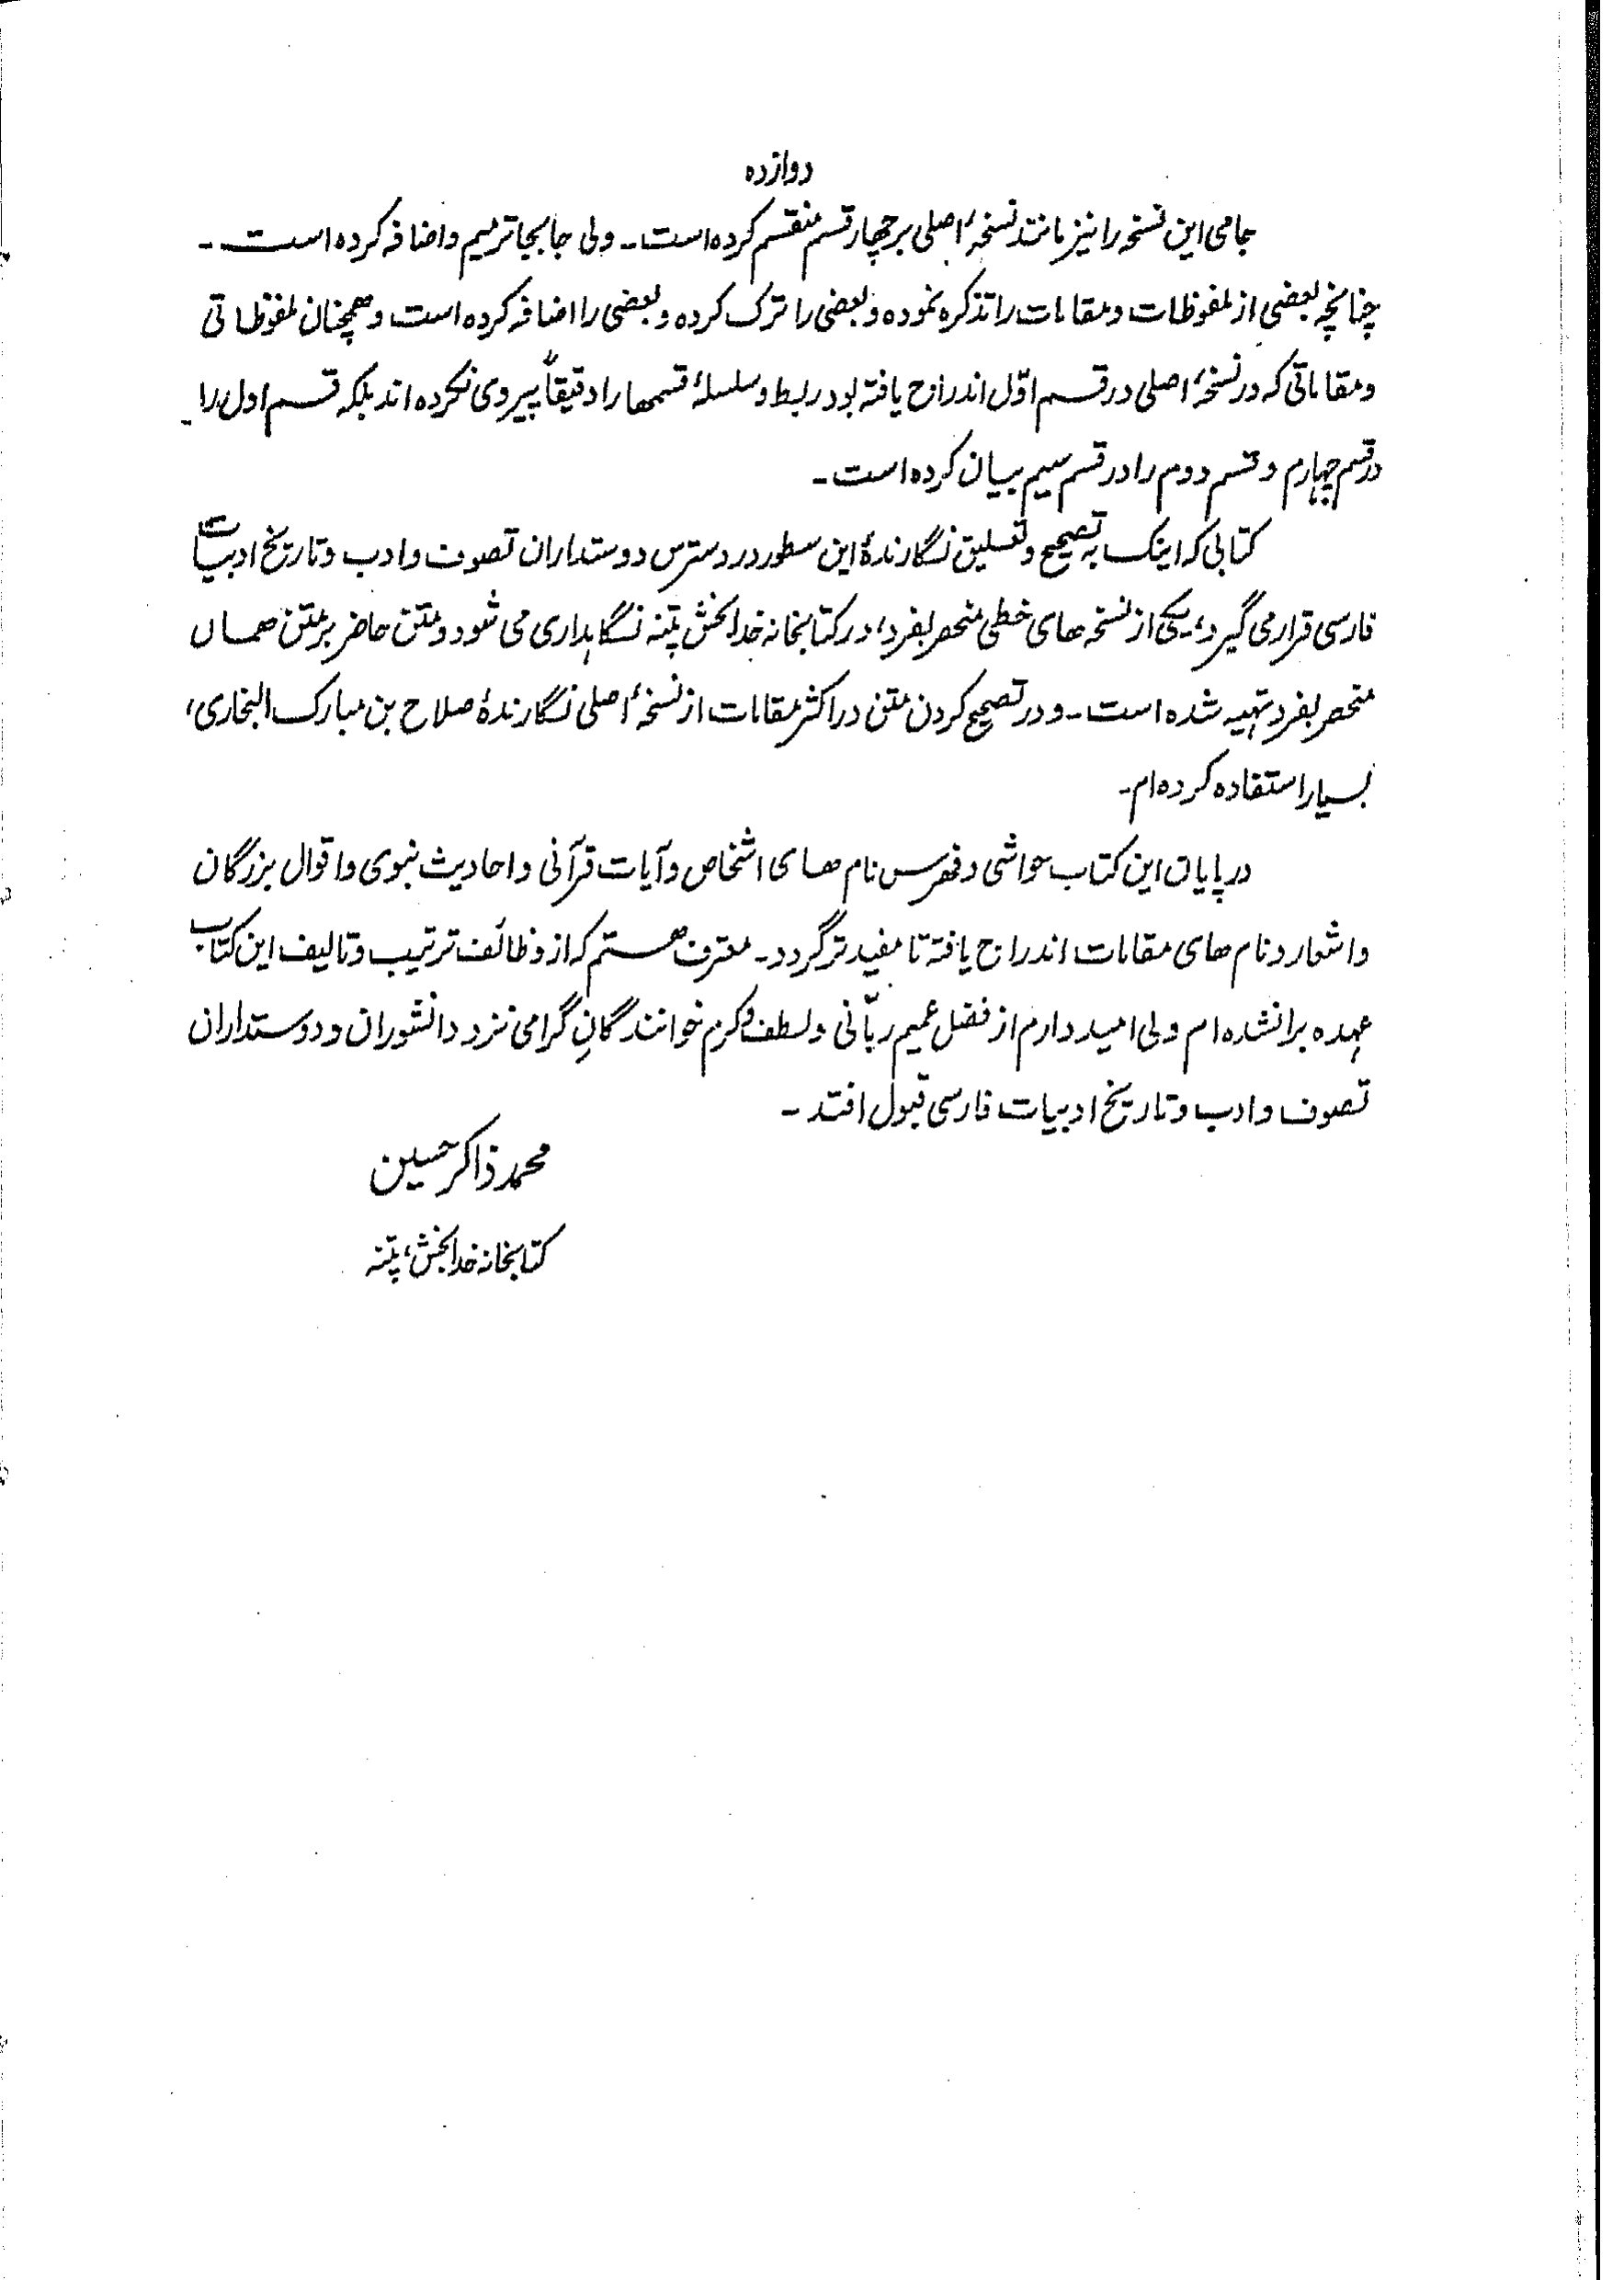 دوازده
جامی این نسخه را نیز مانند نسخهٔ اصلی بر چهار قسم منقسم کرده است۔ ولی جابجا ترمیم و اضافه کرده است۔
چنانچه بعضی از ملفوظات و مقامات را تذکره نموده و بعضی را ترک کرده و بعضی را اضافه کرده است و همچنان ملفوظاتی
و مقاماتی که در نسخهٔ اصلی در قسم اوّل اندراج یافته بود ربط و سلسلهٔ قسمها را دقیقاً پیروی نکرده اند بلکه قسم اول را
در قسم چهارم و قسم دوم را در قسم سیم بیان کرده است۔
کتابی که اینک به تصحیح و تعلیق نگارندهٔ این سطور در دسترس دوستداران تصوف و ادب و تاریخ ادبیات
فارسی قرار می گیرد، یکی از نسخه های خطی منحصر بفرد، در کتابخانه خدابخش پتنه نگاہداری می شود و متن حاضر بر متن همان
منحصر بفرد تهیه شده است۔ و در تصحیح کردن متن در اکثر مقامات از نسخهٔ اصلی نگارندهٔ صلاح بن مبارک البخاری،
بسیار استفاده کرده ام۔
در پایان این کتاب حواشی و فهرس نام های اشخاص و آیات قرآنی و احادیث نبوی و اقوال بزرگان
و اشعار و نام های مقامات اندراج یافته تا مفید تر گردد۔ معترف هستم که از وظائف ترتیب و تالیف این کتاب
عهده برا نشده ام ولی امید دارم از فضل عمیم ربّانی و لطف و کرم خوانندگانِ گرامی نزد دانشوران و دوستداران
تصوف و ادب و تاریخ ادبیات فارسی قبول افتد۔
محمد ذاکر حسین
کتابخانه خدابخش، پتنه